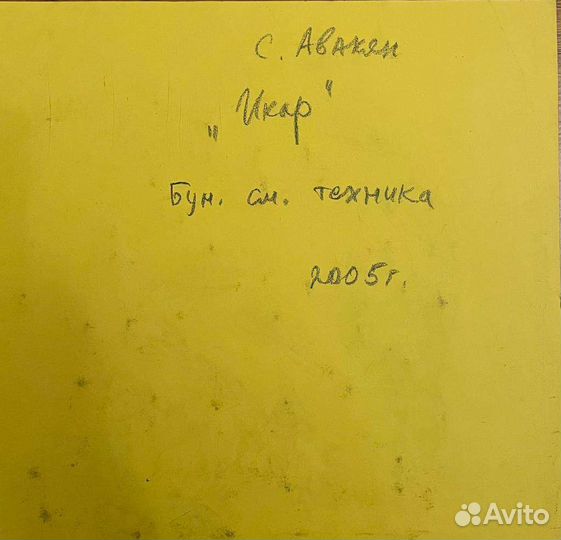 С. Авакян
„Икар"
Бум. см. техника
2005г.
Avito